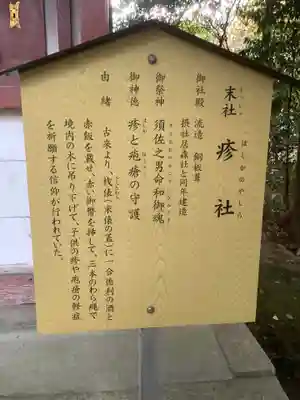 末社 疹社
はしかのやしろ
御社殿 流造 銅板葺
摂社居森社と同年建造
御祭神 須佐之男命和御魂
御神徳 疹と疱瘡の守護
由緒 古来より、桟俵(米俵の蓋)に一合徳利の酒と
赤飯を戴せ、赤い御幣を挿して、三本のわら縄で
境内の木に吊り下げて、子供の疹や疱瘡の軽症
を祈願する信仰が行われていた。